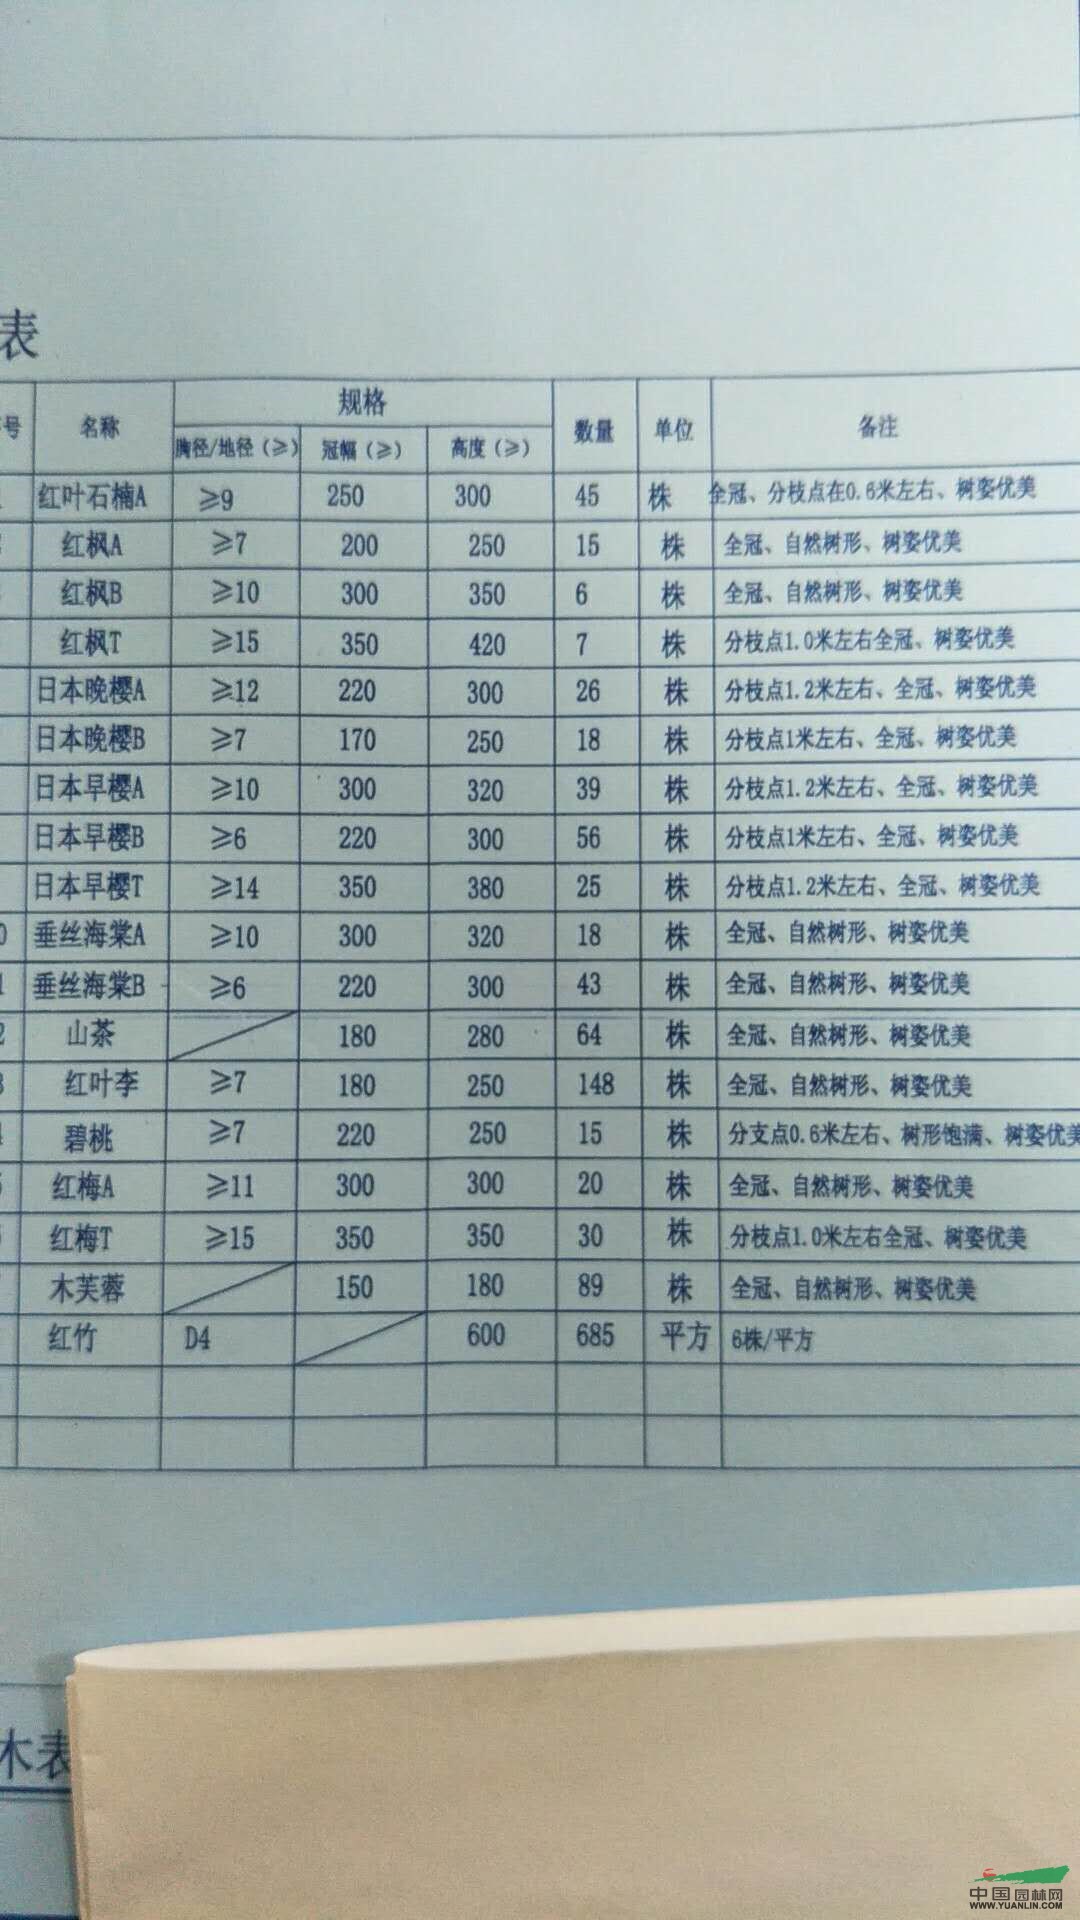 表
号 名称 规格 数量 单位 备注
胸径/地径（≥） 冠幅（≥） 高度（≥）
红叶石楠A ≥9 250 300 45 株 全冠、分枝点在0.6米左右、树姿优美
红枫A ≥7 200 250 15 株 全冠、自然树形、树姿优美
红枫B ≥10 300 350 6 株 全冠、自然树形、树姿优美
红枫T ≥15 350 420 7 株 分枝点1.0米左右全冠、树姿优美
日本晚樱A ≥12 220 300 26 株 分枝点1.2米左右、全冠、树姿优美
日本晚樱B ≥7 170 250 18 株 分枝点1米左右、全冠、树姿优美
日本早樱A ≥10 300 320 39 株 分枝点1.2米左右、全冠、树姿优美
日本早樱B ≥6 220 300 56 株 分枝点1米左右、全冠、树姿优美
日本早樱T ≥14 350 380 25 株 分枝点1.2米左右、全冠、树姿优美
0 垂丝海棠A ≥10 300 320 18 株 全冠、自然树形、树姿优美
1 垂丝海棠B ≥6 220 300 43 株 全冠、自然树形、树姿优美
2 山茶 180 280 64 株 全冠、自然树形、树姿优美
3 红叶李 ≥7 180 250 148 株 全冠、自然树形、树姿优美
4 碧桃 ≥7 220 250 15 株 分支点0.6米左右、树形饱满、树姿优美
红梅A ≥11 300 300 20 株 全冠、自然树形、树姿优美
红梅T ≥15 350 350 30 株 分枝点1.0米左右全冠、树姿优美
木芙蓉 150 180 89 株 全冠、自然树形、树姿优美
红竹 D4 600 685 平方 6株/平方
木表
中国园林网
WWW.YUANLIN.COM